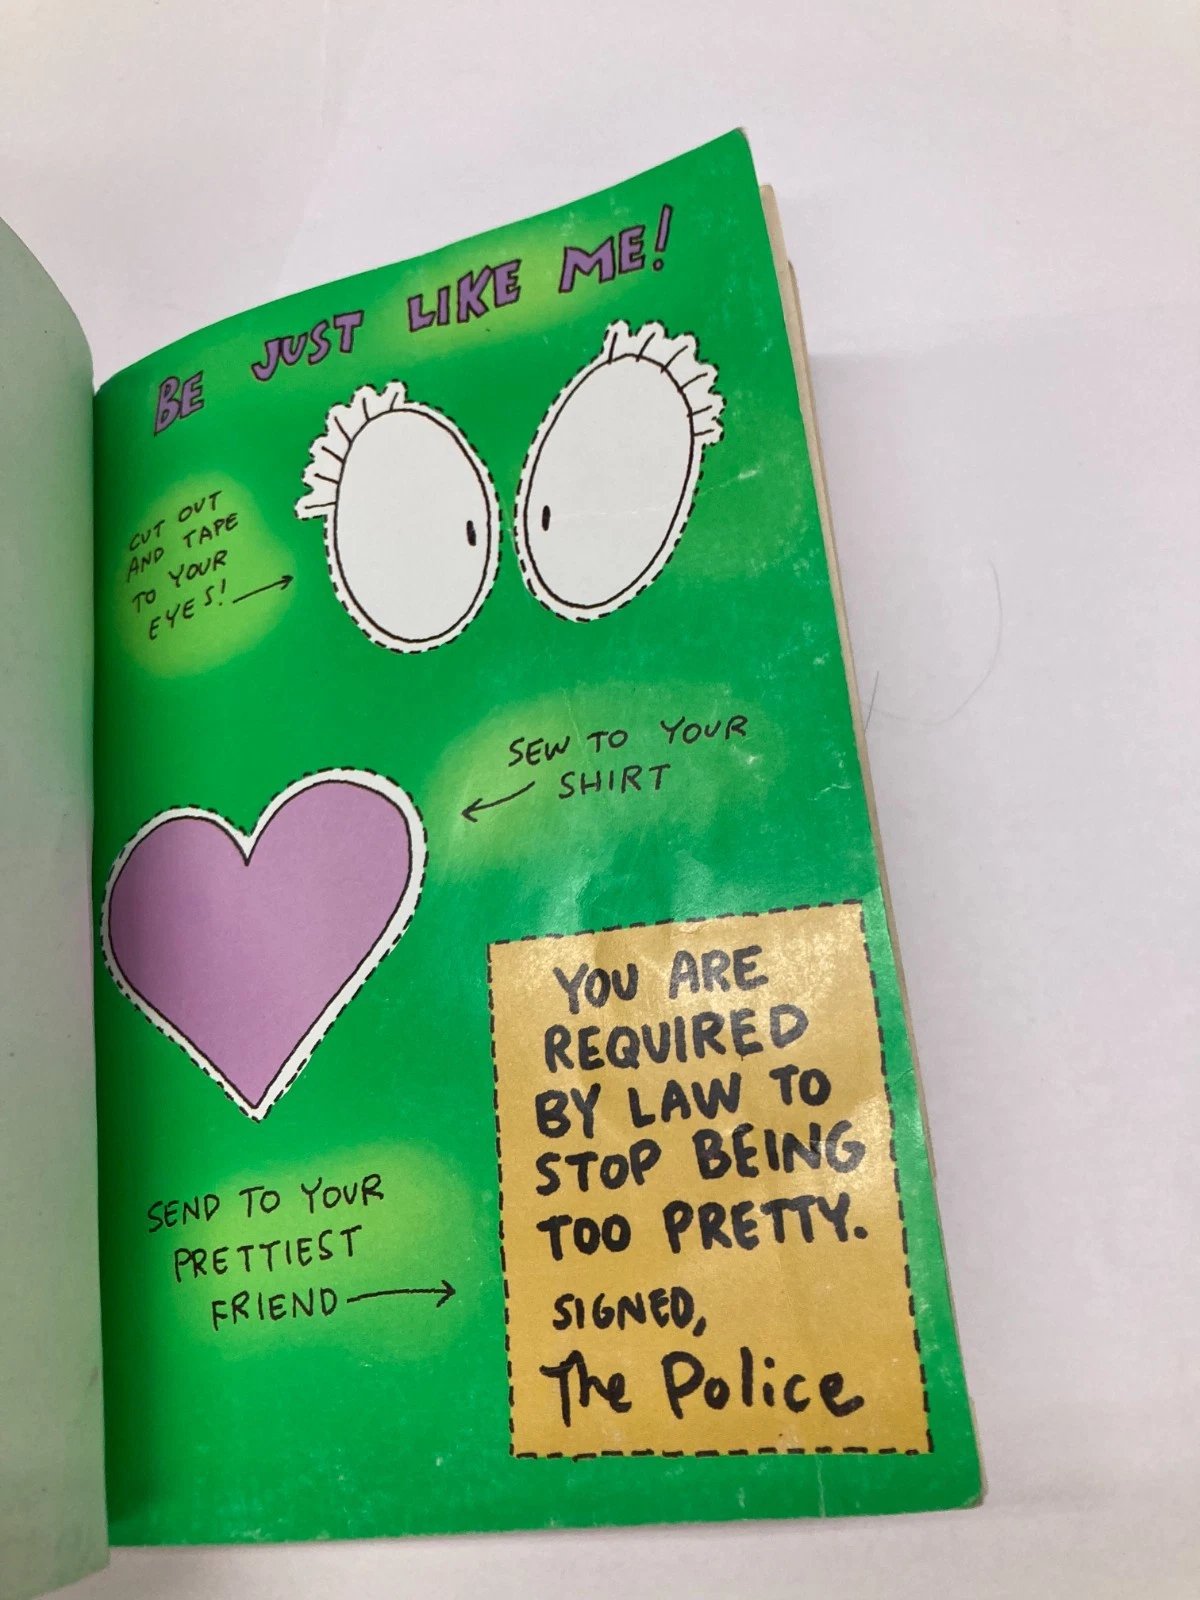 BE JUST LIKE ME!
CUT OUT
AND TAPE
TO YOUR
EYES!
SEW TO YOUR
SHIRT
YOU ARE
REQUIRED
BY LAW TO
STOP BEING
TOO PRETTY.
SIGNED,
The Police
SEND TO YOUR
PRETTIEST
FRIEND